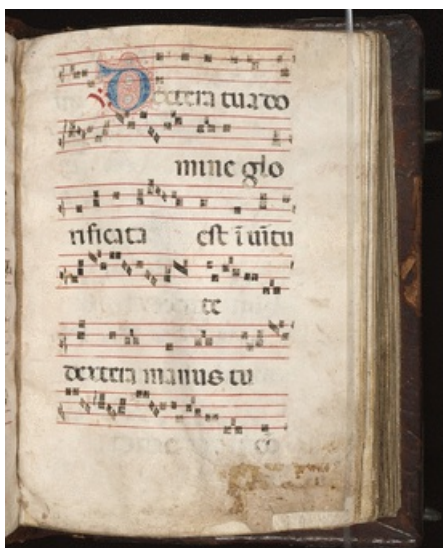 Dextera tua do
mine glo
rificata est ī uirtu
te
dextera manus tu